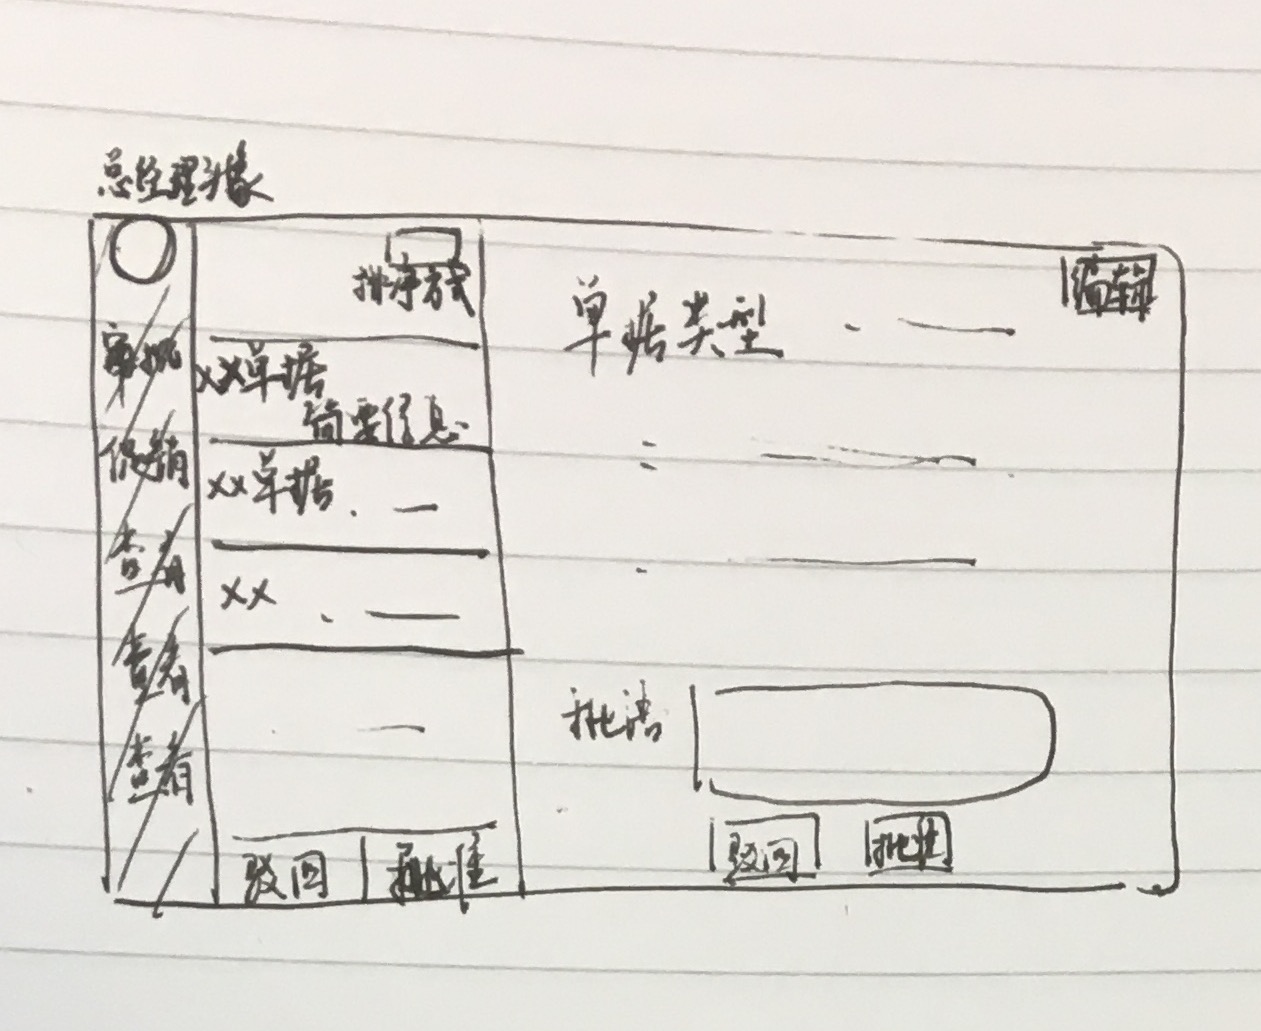 总经理头像
审批
促销
查看
查看
查看
排序方式
xx单据
简要信息
xx单据
xx
驳回
批准
编辑
单据类型
批语
驳回
批准